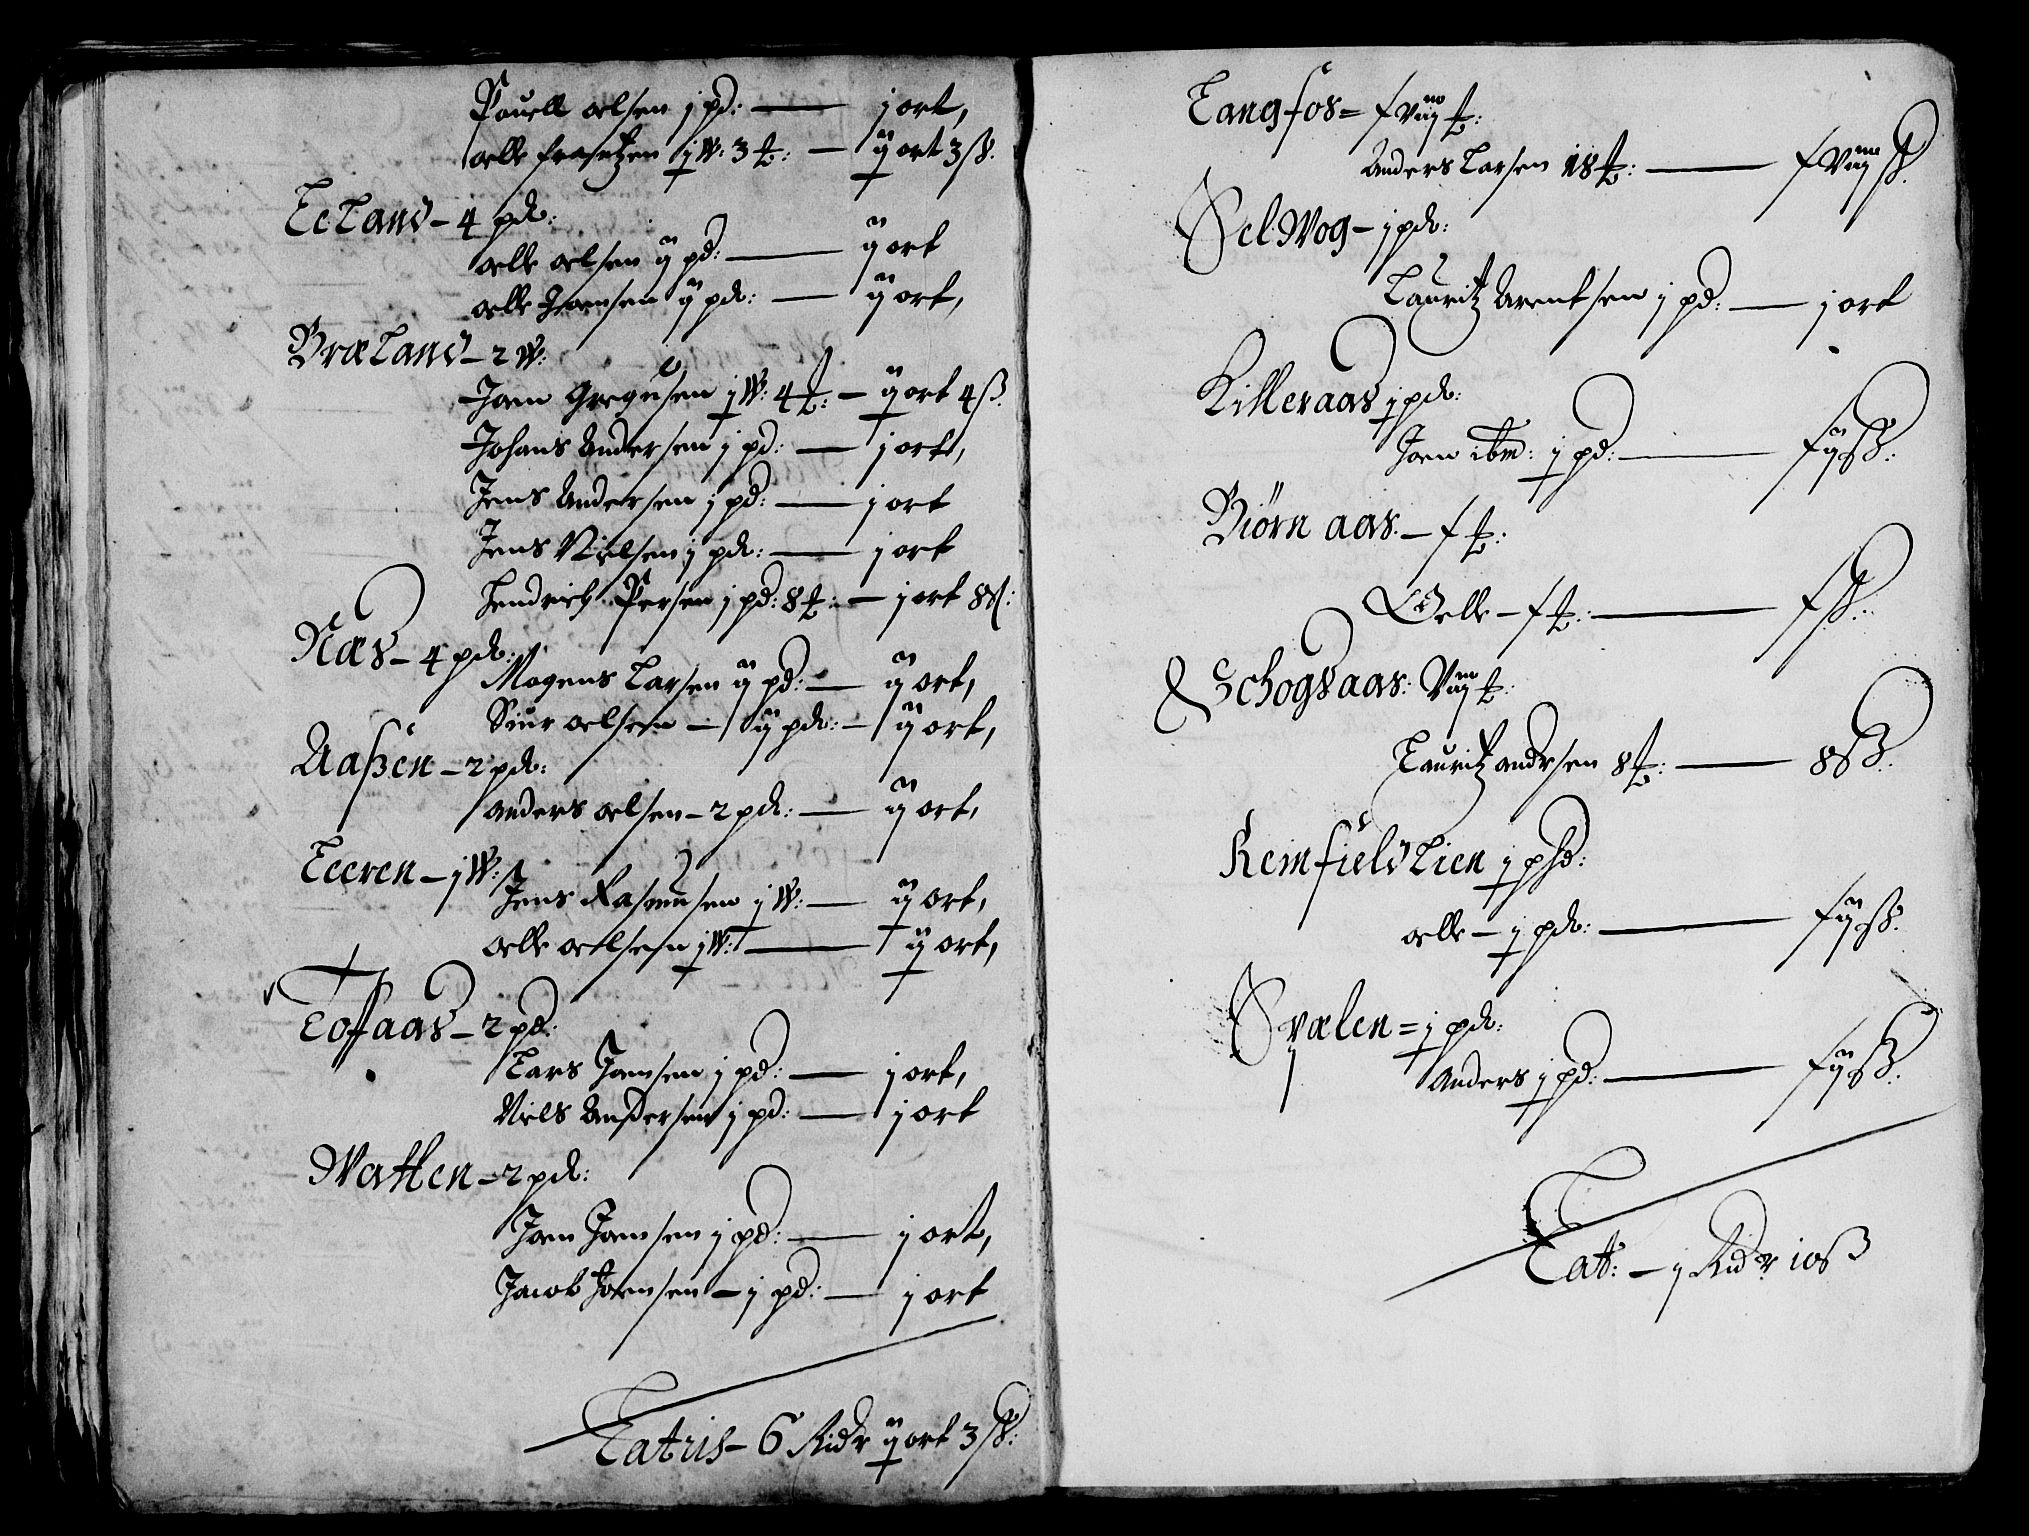 Pouell oelsen j pd: — j ort,
oelle frantzen j W: 3 ℔: — ij ort 3 ß.
Ecland – 4 pd:
oelle oelsen ij pd: — ij ort
oelle Joensen ij pd: — ij ort,
Bræland – 2 W:
Joen Gregusen j W: 4 ℔: — ij ort 4 ß.
Johans Andersen j pd: — j ort,
Jens Andersen j pd: — j ort
Jens Nielsen j pd: — j ort
Hendrich Persen j pd: 8 ℔: — j ort 8 ß:
Næs – 4 pd:
Mogens Larsen ij pd: — ij ort,
Siur oelsen – ij pd: — ij ort,
Aaßen – 2 pd:
Anders oelsen – 2 pd: — ij ort,
Leeren – j W:
Jens Rasmusen j W: — ij ort,
oelle oelsen j W: — ij ort,
Tofaas – 2 pd:
Lars Joensen j pd: — j ort,
Niels Andersen j pd: — j ort
Watten – 2 pd:
Joen Joensen j pd: — j ort,
Jacob Joensen – j pd: — j ort
Latus – 6 Ridr ij ort 3 ß:
Langfos = xviij ℔:
Anders Larsen 18 ℔: — xviij ß.
Selwog – j pd:
Lauritz Arentsen j pd: — j ort
Killeraas j pd:
Joen ibm: j pd: — xij ß:
Biørn aas – x ℔:
Oelle – x ℔: — x ß:
Schogsaas: viij ℔:
Lauritz andrsen 8 ℔: — 8 ß.
Remfield Lien j pd:
oelle – j pd: — xij ß.
Spælen = j pd:
Anders j pd: — xij ß:
Lat: – j Ridr 10 ß